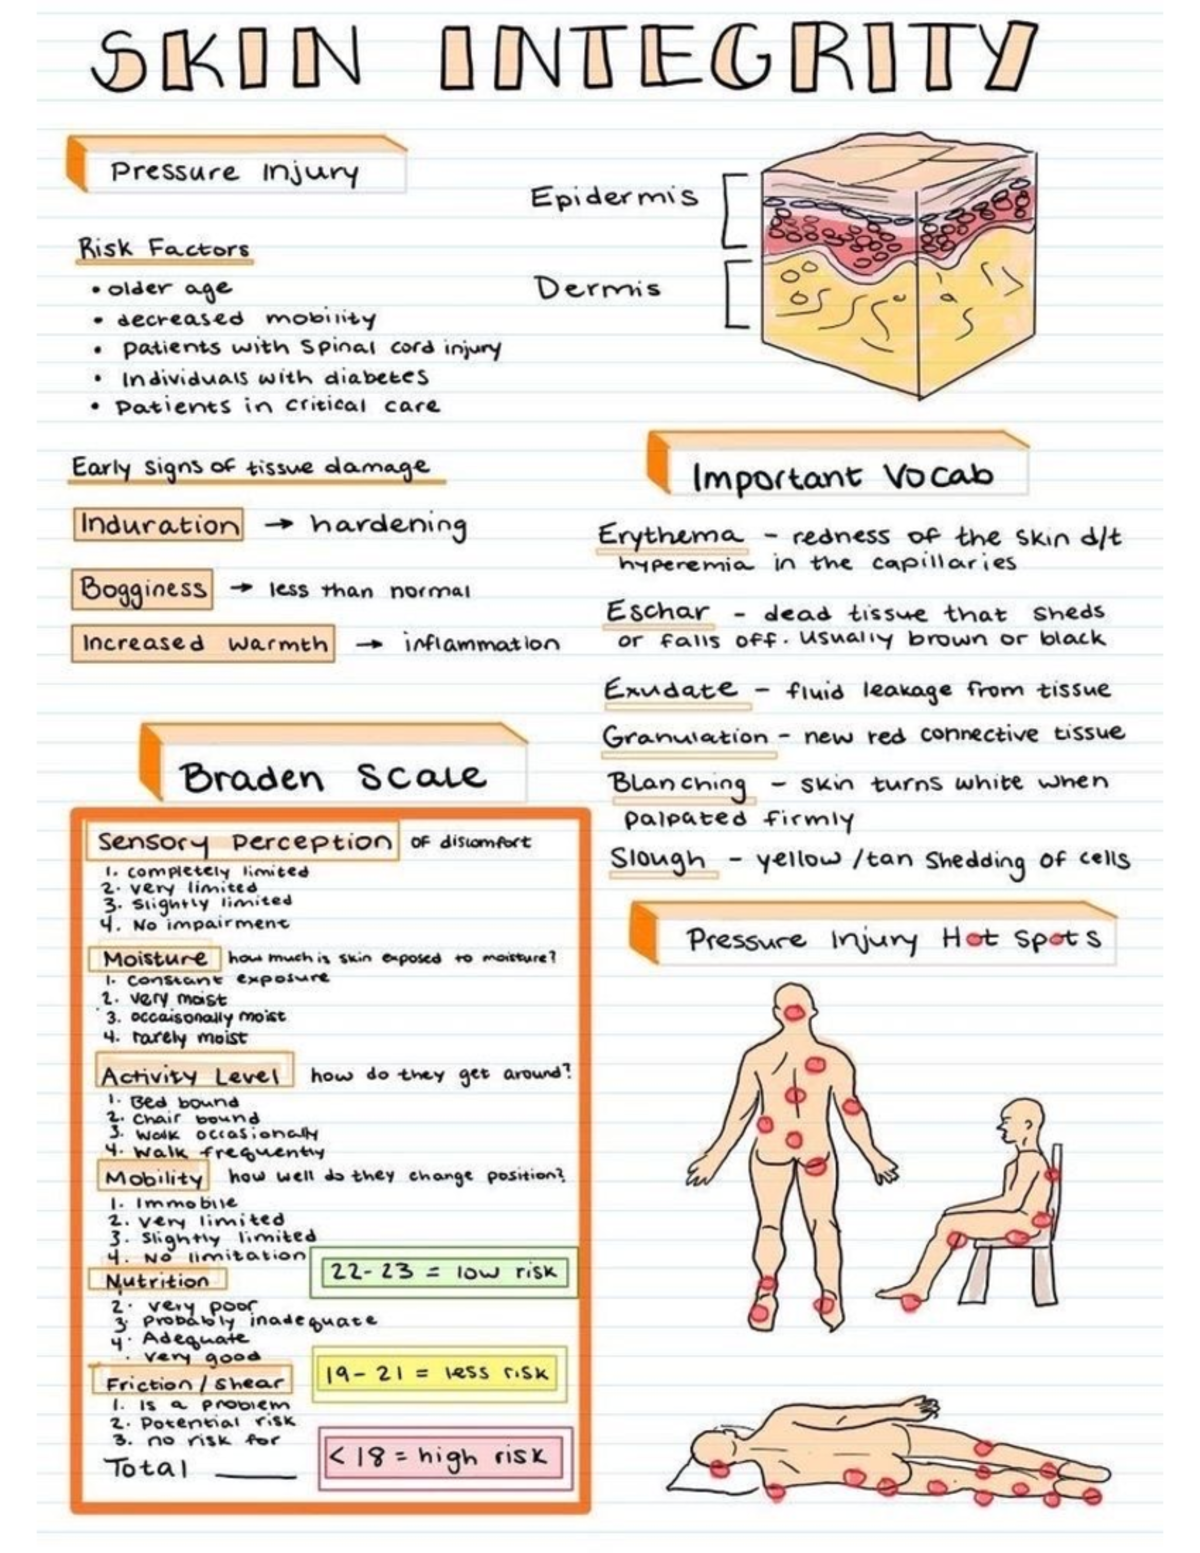 SKIN INTEGRITY
Pressure Injury
Risk Factors
• older age
• decreased mobility
• patients with spinal cord injury
• Individuals with diabetes
• Patients in critical care
Early signs of tissue damage
Induration → hardening
Bogginess → less than normal
Increased warmth → inflammation
Epidermis
Dermis
Important Vocab
Erythema - redness of the skin d/t
hyperemia in the capillaries
Eschar - dead tissue that sheds
or falls off. usually brown or black
Exudate - fluid leakage from tissue
Granulation - new red connective tissue
Blanching - skin turns white when
palpated firmly
Slough - yellow/tan shedding of cells
Braden Scale
Sensory Perception of discomfort
1. completely limited
2. very limited
3. slightly limited
4. No impairment
Moisture how much is skin exposed to moisture?
1. constant exposure
2. very moist
3. occaisonally moist
4. rarely moist
Activity Level how do they get around?
1. Bed bound
2. Chair bound
3. Walk occasionally
4. Walk frequently
Mobility how well do they change position?
1. Immobile
2. very limited
3. slightly limited
4. No limitation
Nutrition
2. very poor
3. Probably inadequate
4. Adequate
. very good
Friction/Shear
1. is a problem
2. Potential risk
3. no risk for
Total
22-23 = low risk
19-21 = less risk
<18 = high risk
Pressure Injury Hot Spots